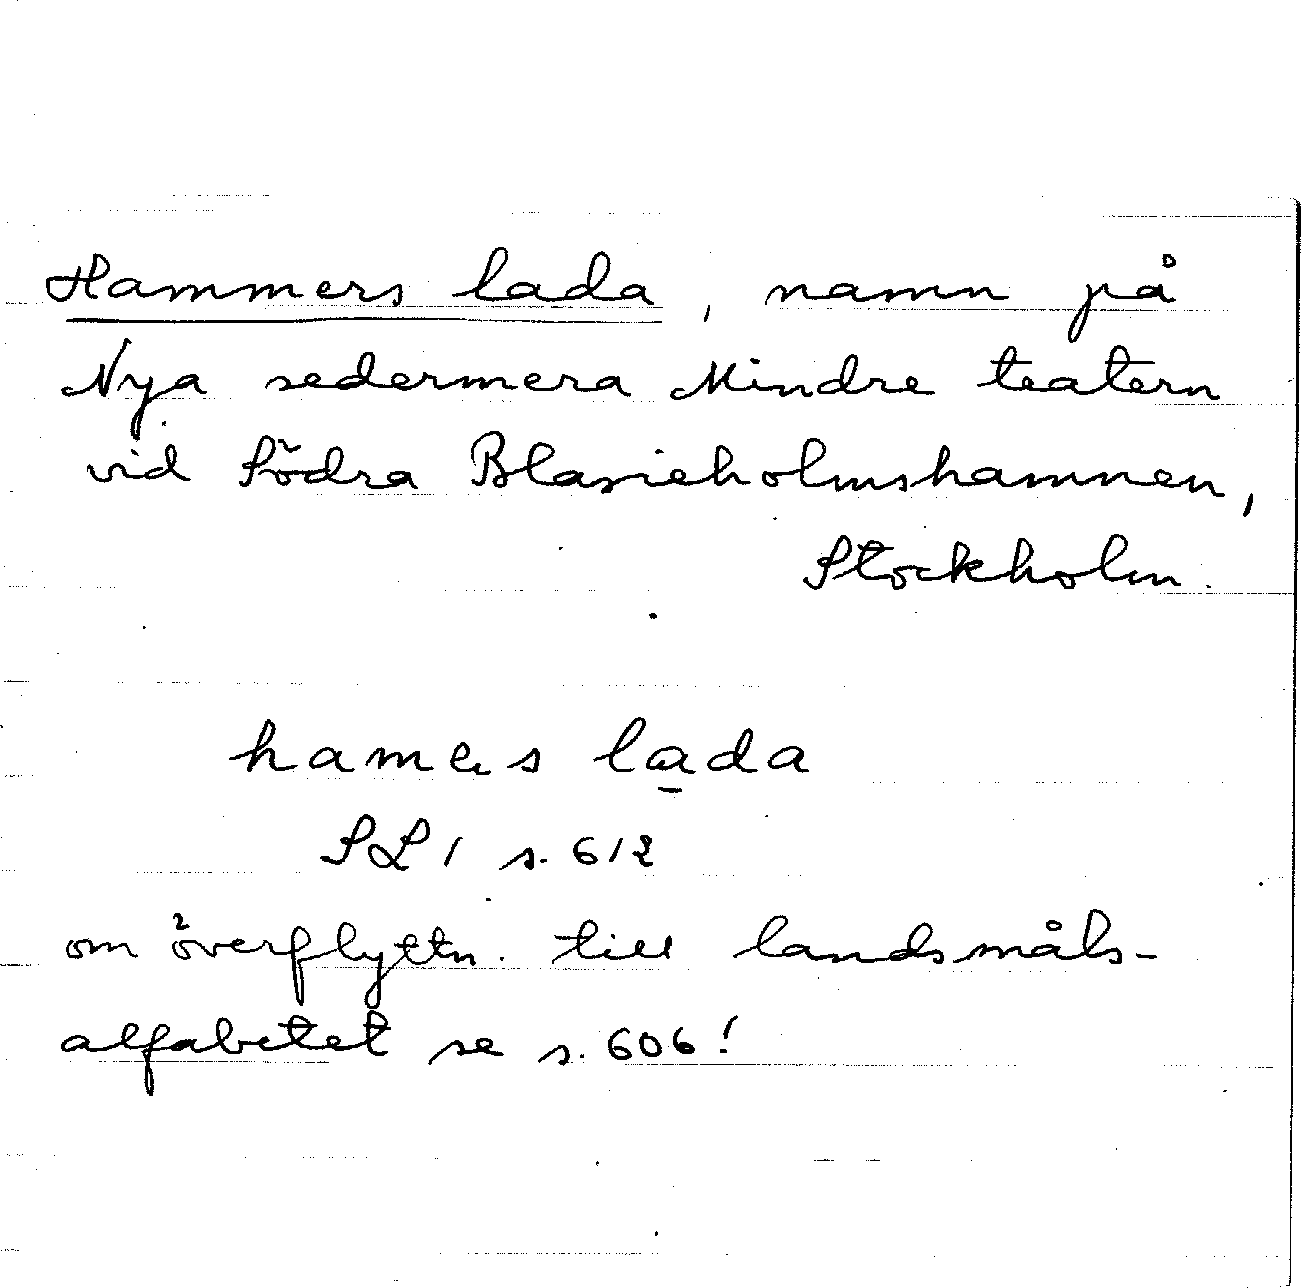 Hammers lada, namn på
Nya sedermera Mindre teatern
vid Södra Blasieholmshamnen,
Stockholm.
lada
SL 1 s. 612
om överflyttn. till landsmåls-
alfabetet se s. 606!